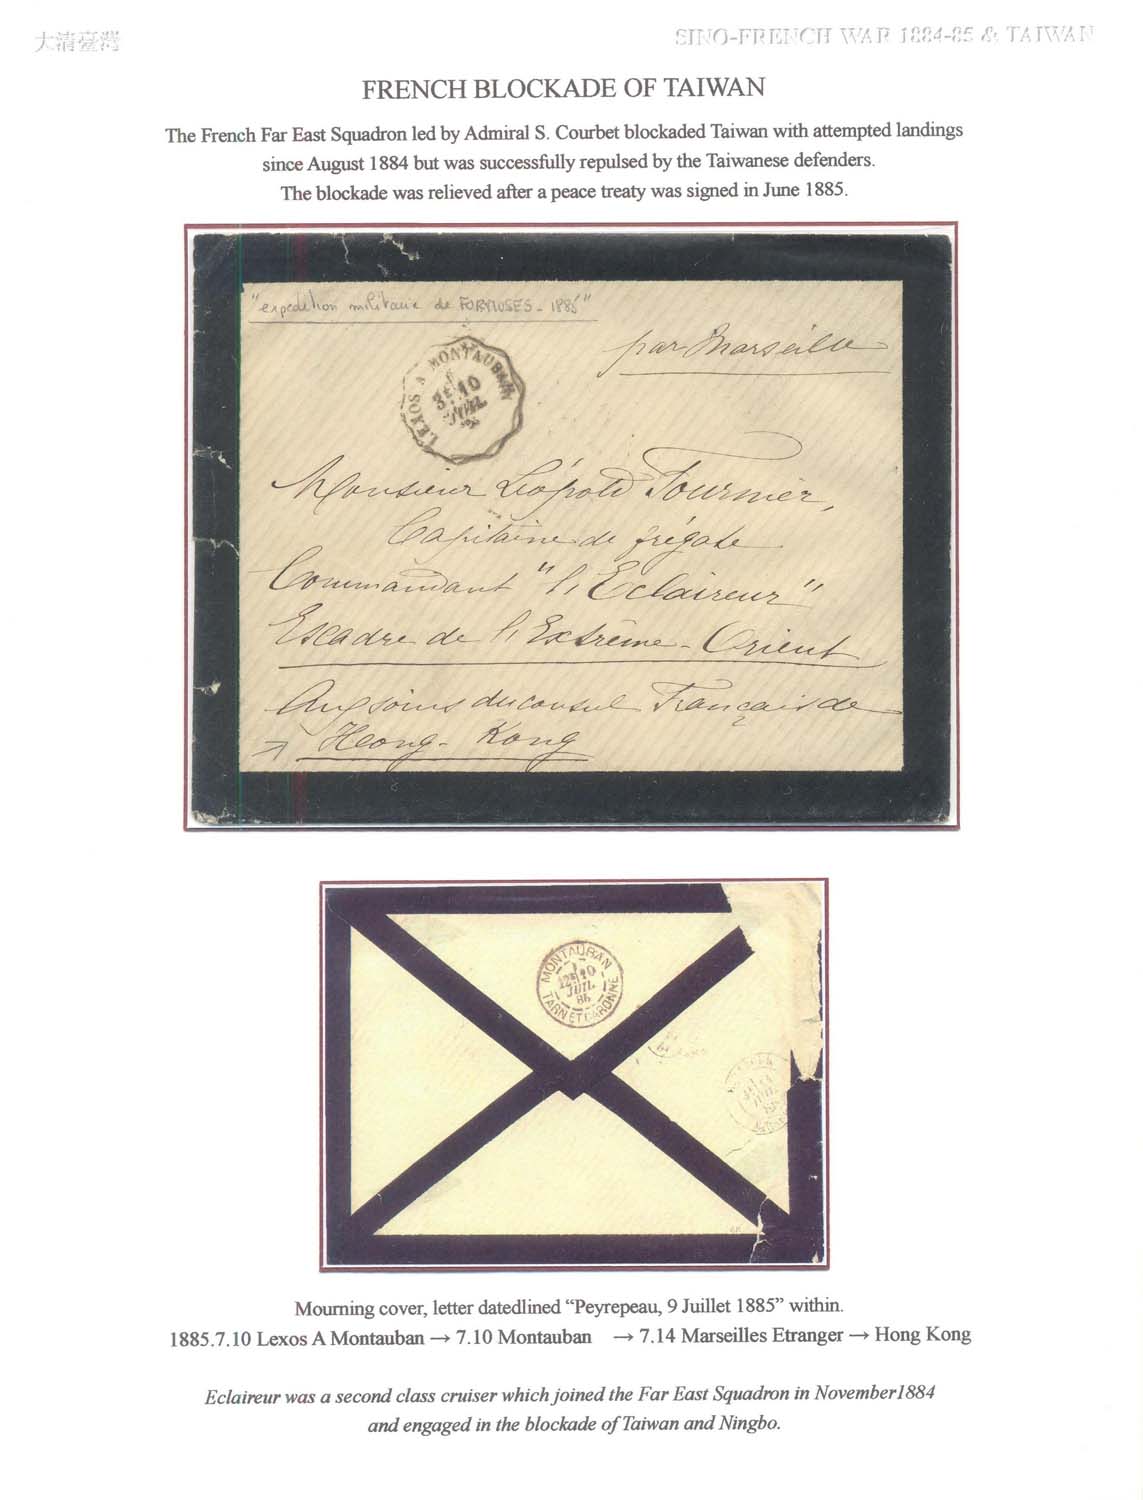 大清臺灣
SINO-FRENCH WAR 1884-85 & TAIWAN
FRENCH BLOCKADE OF TAIWAN
The French Far East Squadron led by Admiral S. Courbet blockaded Taiwan with attempted landings
since August 1884 but was successfully repulsed by the Taiwanese defenders.
The blockade was relieved after a peace treaty was signed in June 1885.
"expedition militaire de FORMOSES - 1885"
par Marseille
LEXOS A MONTAUBAN
3E 10
JUIL
Monsieur Léopold Fournier,
Capitaine de frégate
Commandant "l'Eclaireur"
Escadre de l'Extrême-Orient
Aux soins du consul Français de
Hong-Kong
MONTAUBAN
12E 10
JUIL
85
TARN ET GARONNE
Mourning cover, letter datedlined “Peyrepeau, 9 Juillet 1885” within.
1885.7.10 Lexos A Montauban → 7.10 Montauban → 7.14 Marseilles Etranger → Hong Kong
Eclaireur was a second class cruiser which joined the Far East Squadron in November1884
and engaged in the blockade of Taiwan and Ningbo.